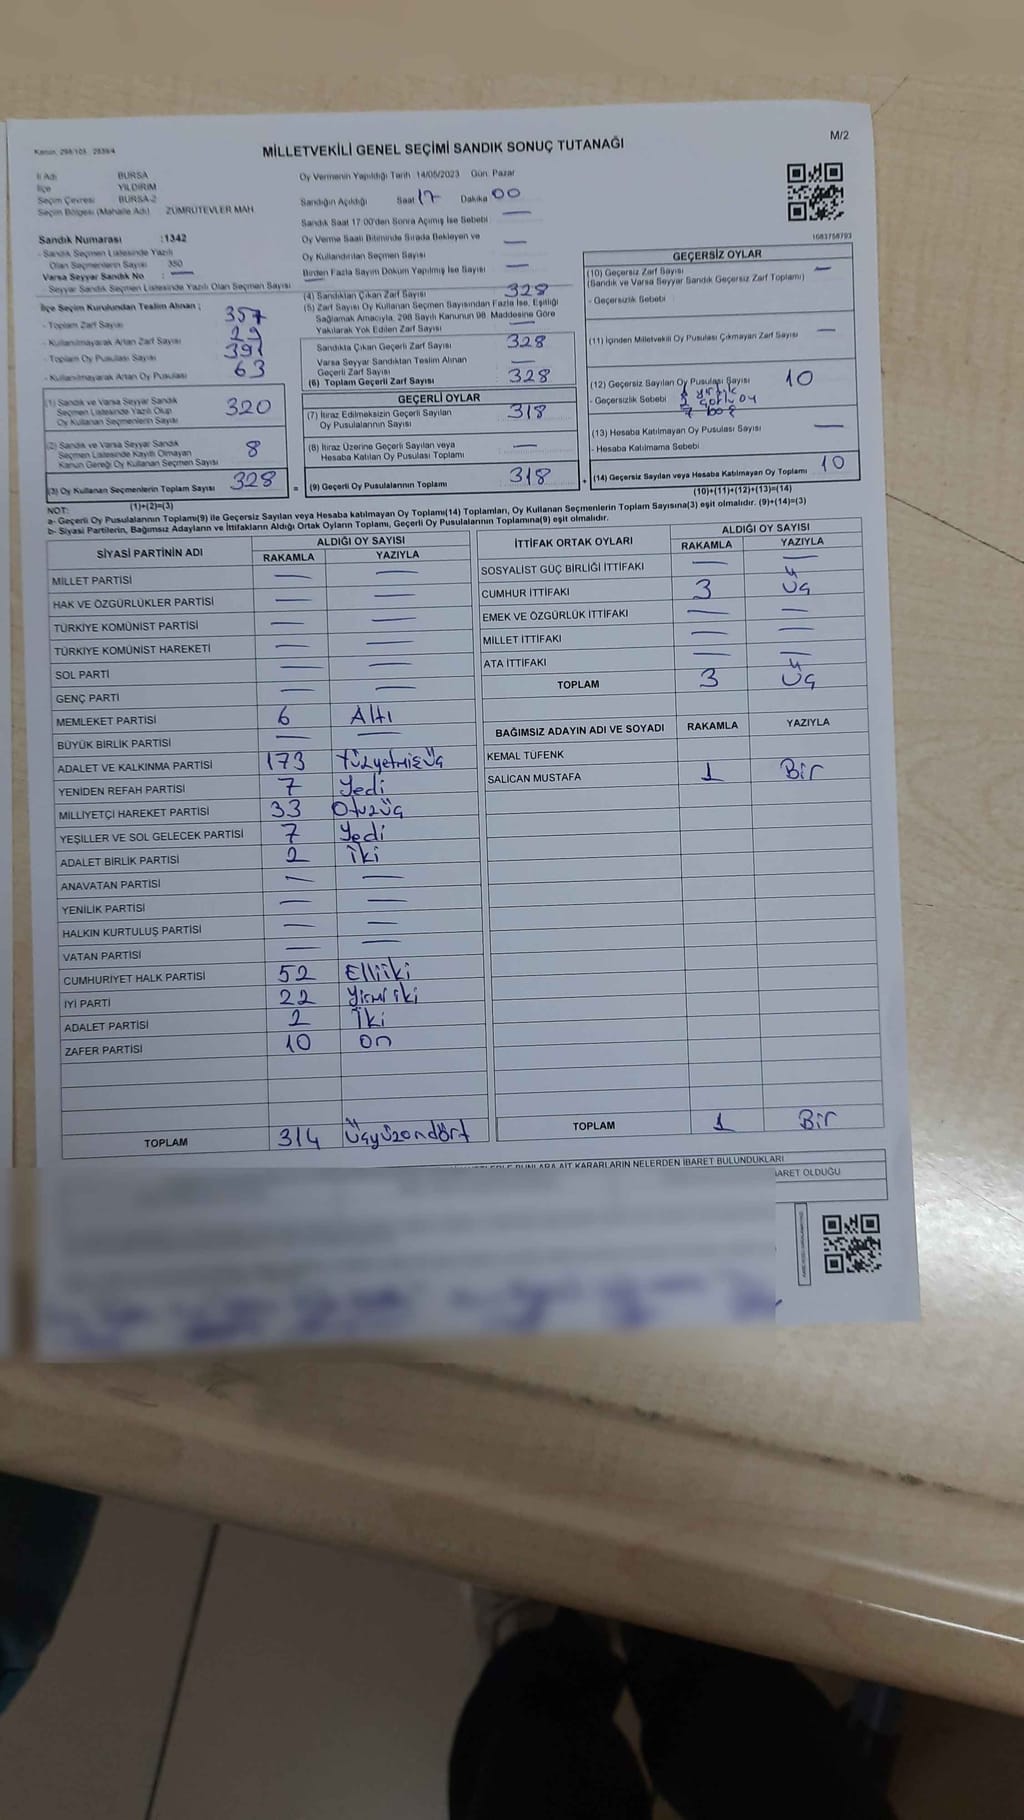 M/2
MİLLETVEKİLİ GENEL SEÇİMİ SANDIK SONUÇ TUTANAĞI
İl Adı BURSA
İlçe YILDIRIM
Seçim Çevresi BURSA-2
Seçim Bölgesi (Mahalle Adı) ZÜMRÜTEVLER MAH
Sandık Numarası :1342
- Sandık Seçmen Listesinde Yazılı
Olan Seçmenlerin Sayısı 350
Varsa Seyyar Sandık No : —
Seyyar Sandık Seçmen Listesinde Yazılı Olan Seçmen Sayısı
Oy Vermenin Yapıldığı Tarih :14/05/2023 Gün: Pazar
Sandığın Açıldığı Saat 17 Dakika 00
Sandık Saat 17:00'den Sonra Açılmış İse Sebebi —
Oy Verme Saati Bitiminde Sırada Bekleyen ve
Oy Kullandırılan Seçmen Sayısı —
Birden Fazla Sayım Döküm Yapılmış İse Sayısı —
1083758793
İlçe Seçim Kurulundan Teslim Alınan ;
- Toplam Zarf Sayısı 357
- Kullanılmayarak Artan Zarf Sayısı 29
- Toplam Oy Pusulası Sayısı 391
- Kullanılmayarak Artan Oy Pusulası 63
(1) Sandık ve Varsa Seyyar Sandık
Seçmen Listesinde Yazılı Olup
Oy Kullanan Seçmenlerin Sayısı 320
(2) Sandık ve Varsa Seyyar Sandık
Seçmen Listesinde Kayıtlı Olmayan
Kanun Gereği Oy Kullanan Seçmen Sayısı 8
(3) Oy Kullanan Seçmenlerin Toplam Sayısı 328
(1)+(2)=(3)
(4) Sandıktan Çıkan Zarf Sayısı 328
(5) Zarf Sayısı Oy Kullanan Seçmen Sayısından Fazla İse, Eşitliği
Sağlamak Amacıyla, 298 Sayılı Kanunun 98. Maddesine Göre
Yakılarak Yok Edilen Zarf Sayısı —
Sandıkta Çıkan Geçerli Zarf Sayısı 328
Varsa Seyyar Sandıktan Teslim Alınan
Geçerli Zarf Sayısı —
(6) Toplam Geçerli Zarf Sayısı 328
GEÇERLİ OYLAR
(7) İtiraz Edilmeksizin Geçerli Sayılan
Oy Pusulalarının Sayısı 318
(8) İtiraz Üzerine Geçerli Sayılan veya
Hesaba Katılan Oy Pusulası Toplamı —
= (9) Geçerli Oy Pusulalarının Toplamı 318
GEÇERSİZ OYLAR
(10) Geçersiz Zarf Sayısı —
(Sandık ve Varsa Seyyar Sandık Geçersiz Zarf Toplamı)
- Geçersizlik Sebebi
(11) İçinden Milletvekili Oy Pusulası Çıkmayan Zarf Sayısı —
(12) Geçersiz Sayılan Oy Pusulası Sayısı 10
- Geçersizlik Sebebi
7 boş
(13) Hesaba Katılmayan Oy Pusulası Sayısı —
- Hesaba Katılmama Sebebi
+ (14) Geçersiz Sayılan veya Hesaba Katılmayan Oy Toplamı 10
(10)+(11)+(12)+(13)=(14)
NOT:
a- Geçerli Oy Pusulalarının Toplamı(9) ile Geçersiz Sayılan veya Hesaba katılmayan Oy Toplamı(14) Toplamları, Oy Kullanan Seçmenlerin Toplam Sayısına(3) eşit olmalıdır. (9)+(14)=(3)
b- Siyasi Partilerin, Bağımsız Adayların ve İttifakların Aldığı Ortak Oyların Toplamı, Geçerli Oy Pusulalarının Toplamına(9) eşit olmalıdır.
SİYASİ PARTİNİN ADI ALDIĞI OY SAYISI
RAKAMLA YAZIYLA
MİLLET PARTİSİ — —
HAK VE ÖZGÜRLÜKLER PARTİSİ — —
TÜRKİYE KOMÜNİST PARTİSİ — —
TÜRKİYE KOMÜNİST HAREKETİ — —
SOL PARTİ — —
GENÇ PARTİ — —
MEMLEKET PARTİSİ 6 Altı
BÜYÜK BİRLİK PARTİSİ — —
ADALET VE KALKINMA PARTİSİ 173 Yüzyetmişüç
YENİDEN REFAH PARTİSİ 7 Yedi
MİLLİYETÇİ HAREKET PARTİSİ 33 Otuzüç
YEŞİLLER VE SOL GELECEK PARTİSİ 7 Yedi
ADALET BİRLİK PARTİSİ 2 İki
ANAVATAN PARTİSİ — —
YENİLİK PARTİSİ — —
HALKIN KURTULUŞ PARTİSİ — —
VATAN PARTİSİ — —
CUMHURİYET HALK PARTİSİ 52 Elliiki
İYİ PARTİ 22 Yirmi iki
ADALET PARTİSİ 2 İki
ZAFER PARTİSİ 10 On
TOPLAM 314 Üçyüzondört
İTTİFAK ORTAK OYLARI ALDIĞI OY SAYISI
RAKAMLA YAZIYLA
SOSYALİST GÜÇ BİRLİĞİ İTTİFAKI — —
CUMHUR İTTİFAKI 3 Üç
EMEK VE ÖZGÜRLÜK İTTİFAKI — —
MİLLET İTTİFAKI — —
ATA İTTİFAKI — —
TOPLAM 3 Üç
BAĞIMSIZ ADAYIN ADI VE SOYADI RAKAMLA YAZIYLA
KEMAL TÜFENK
SALİCAN MUSTAFA 1 Bir
TOPLAM 1 Bir
KARARLARIN NELERDEN İBARET BULUNDUKLARI
İBARET OLDUĞU